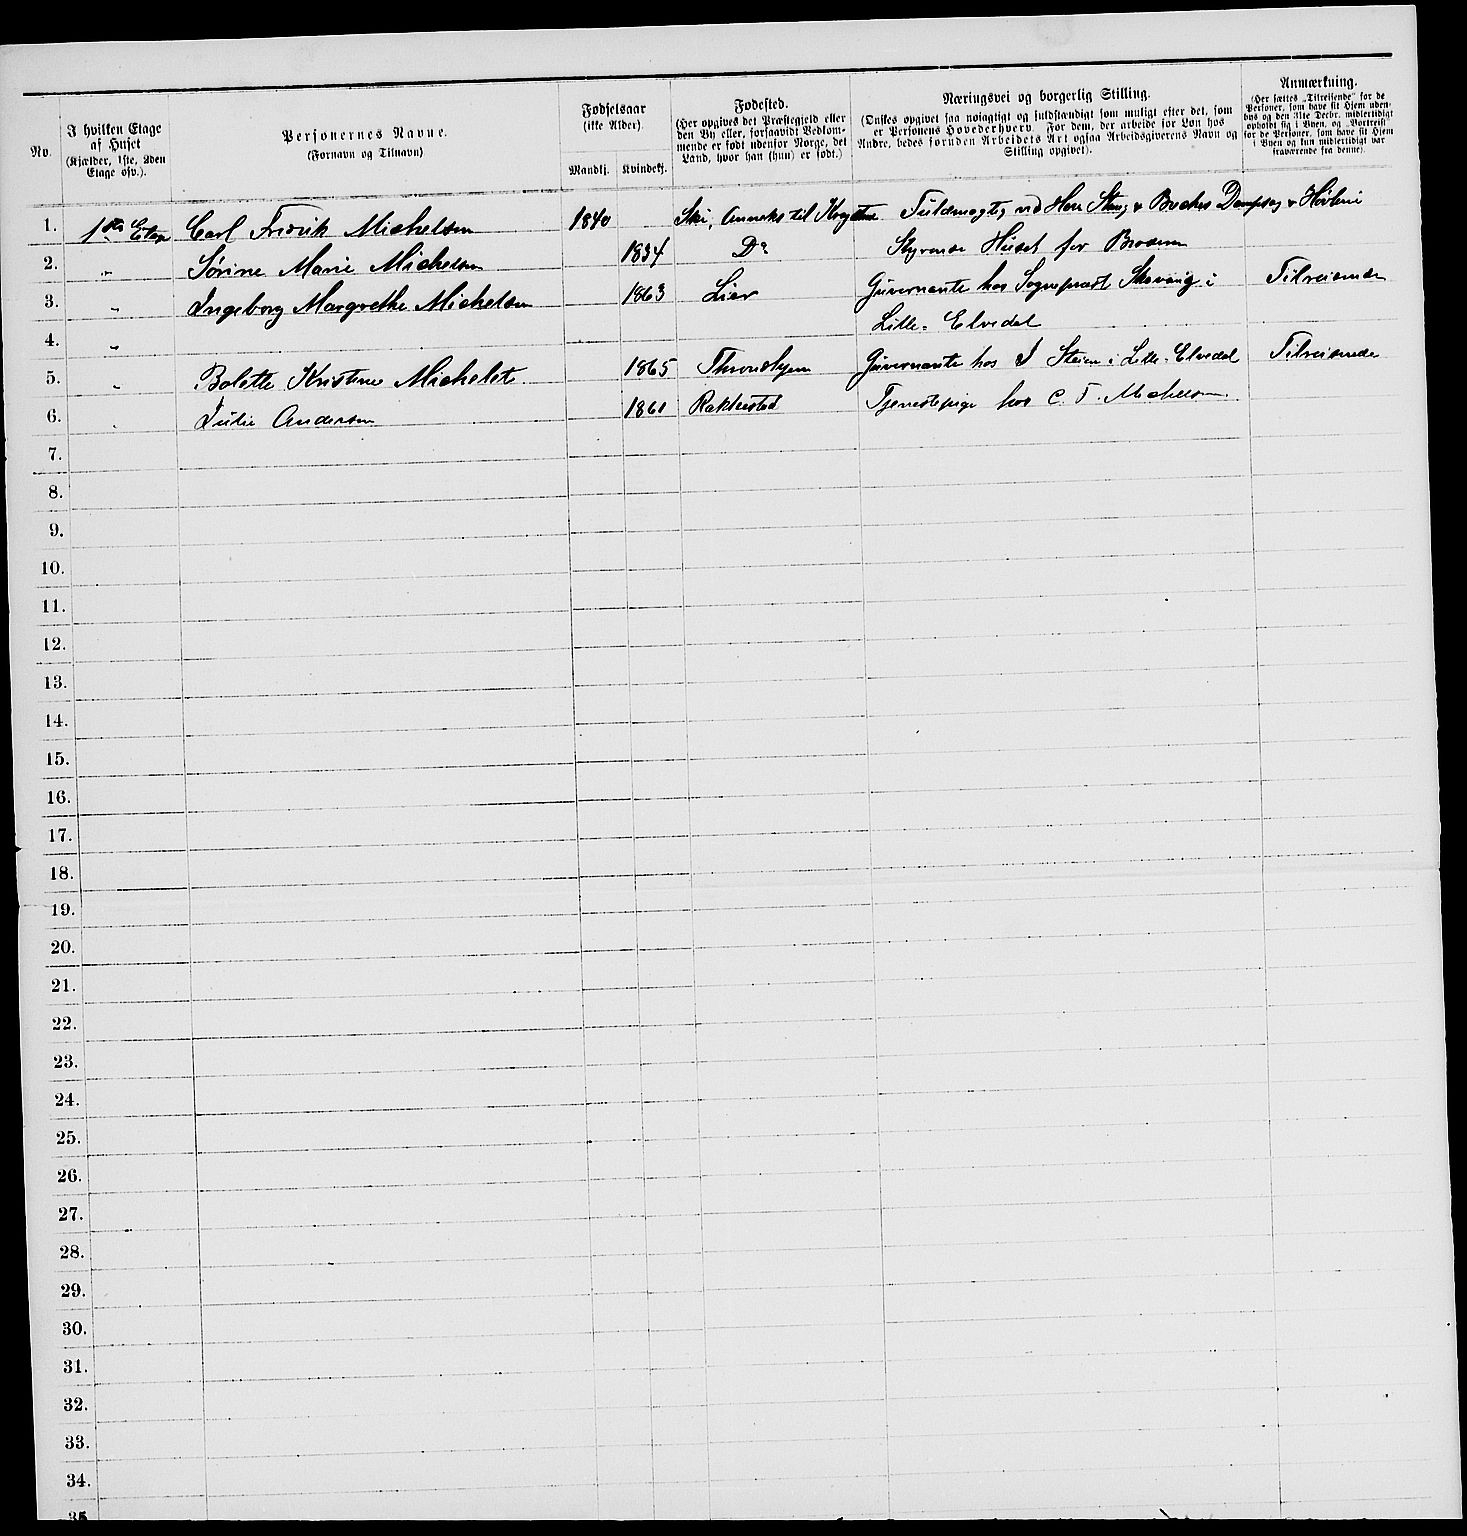 No.
I hvilken Etage af Huset
(Kjælder, 1ste, 2den Etage osv.).
Personernes Navne.
(Fornavn og Tilnavn)
Fødselsaar
(ikke Alder).
Mandkj. Kvindekj.
Fødested.
(Her opgives det Præstegjeld eller
den By eller, forsaavidt Vedkom-
mende er født udenfor Norge, det
Land, hvor han (hun) er født.)
Næringsvei og borgerlig Stilling.
(Ønskes opgivet saa nøiagtigt og fuldstændigt som muligt efter det, som
er Personens Hovederhverv. For dem, der arbeide for Løn hos
Andre, bedes foruden Arbeidets Art ogsaa Arbeidsgiverens Navn og
Stilling opgivet).
Anmærkning.
(Her sættes „Tilreisende" for de
Personer, som have sit Hjem uden-
bys og den 31te Decbr. midlertidigt
opholdt sig i Byen, og „Bortreist"
for de Personer, som have sit Hjem
i Byen og kun midlertidigt var
fraværende fra denne).
1. 1ste Etage Carl Fredrik Michelsen 1840 Ski, Anneks til Fuldmægtig ved Herr & Dampsag & Høvleri
2. " Sørine Marie Michelsen 1834 Do Styrende Huset for Broderen
3. " Ingeborg Margrethe Michelsen 1863 Lier Guvernante hos Sognepræst i Tilreisende
4. " Lille-Elvedal
5. " Bolette Kristine Michelet 1865 Throndhjem Guvernante hos Steien i Lille-Elvedal Tilreisende
6. " Julie Andersen 1861 Rakkestad Tjenestepige hos C. F. Michelsen
7.
8.
9.
10.
11.
12.
13.
14.
15.
16.
17.
18.
19.
20.
21.
22.
23.
24.
25.
26.
27.
28.
29.
30.
31.
32.
33.
34.
35